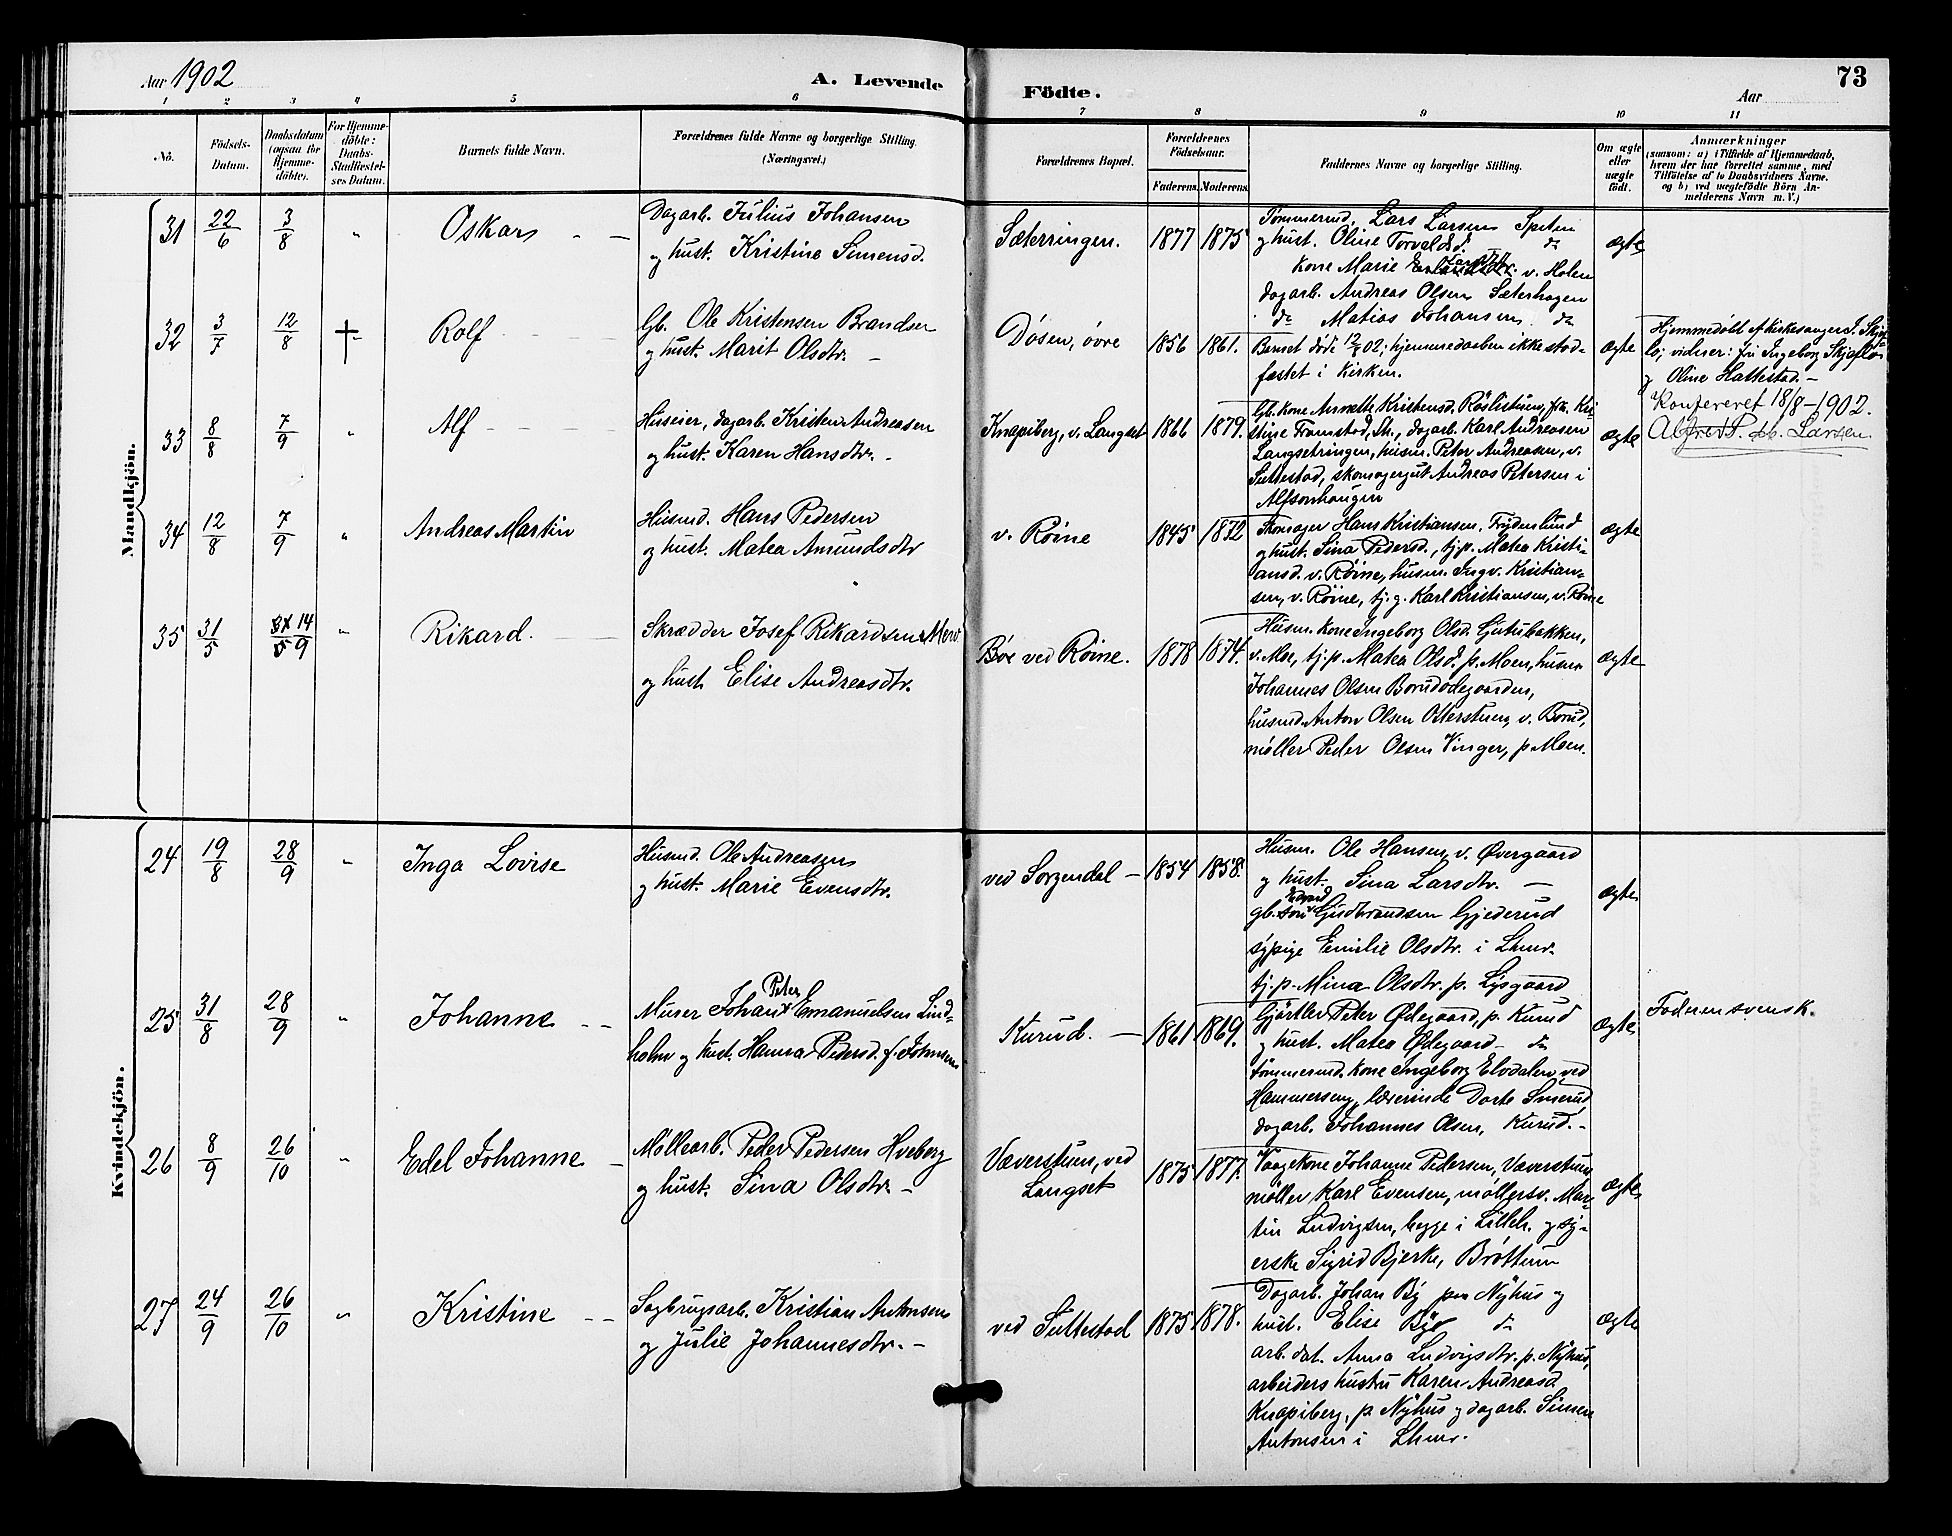 Aar 1902
A. Levende
Födte.
Aar
73
1 2 3 4 5 6 7 8 9 10 11
No.
Födsels-Datum.
Daabsdatum (ogsaa for Hjemme-döbte).
For Hjemme-döbte: Daabs-Stadfæstel-ses Datum.
Barnets fulde Navn.
Forældrenes fulde Navne og borgerlige Stilling.
(Næringsvei.)
Forældrenes Bopæl.
Forældrenes Födselsaar.
Faderens. Moderens.
Faddernes Navne og borgerlige Stilling.
Om ægte eller uægte födt.
Anmærkninger
(saasom: a) i Tilfælde af Hjemmedaab,
hvem der har forrettet samme, med
Tilföielse af to Daabsvidners Navne.
og b) ved uægtefödte Börn An-
melderens Navn m. V.)
Mandkjön.
31 22/6 3/8 " Oskar
Dagarb. Julius Johansen
og hust. Kristine Simensd.
Sæterringen. 1877 1875
Tömmermd. Lars Larsen
og hust. Oline Torvaldsd. do
Kone Marie v. Holen
dagarb. Andreas Olsen Sæterhagen
do Matias Johansen do
ægte
32 3/7 12/8 † Rolf
Gb. Ole Kristensen Brandser
og hust. Marit Olsdtr.
Dösen, övre 1856 1861.
Barnet döde 12/8 02; hjemmedaaben ikke stad-
fæstet i kirken.
ægte
Hjemmedöbt af kirkesanger
vidner: fru Ingeborg
og Oline Hattestad.
Konfereret 18/8 - 1902.
Larsen.
33 8/8 7/9 " Alf
Huseier, dagarb. Kristen Andreasen
og hust. Karen Hansdtr.
Knapiberg, v. Langset 1866 1879.
Gb. Kone Annette Kristensd. Röslistuen, frk. Kri-
stine Framstad, Lh., dagarb. Karl Andreasen
Langsetringen, husm. Peter Andreasen, v.
Suttestad, skomagergut Andreas Petersen i
Alfsonhaugen
ægte
34 12/8 7/9 " Andreas Martin
Husmd. Hans Pedersen
og hust. Matea Amundsdtr
v. Röine 1845 1872
Skomager Hans Kristiansen, Frydenlund
og hust. Sina Pedersd., tj.p. Matea Kristi-
ansd. v. Röine, husm. Ingv. Kristian-
sen, v. Röine, tj. g. Karl Kristiansen, v. Röine
ægte
35 31/5 14/9 " Rikard.
Skrædder Josef Rikardsen
og hust. Elise Andreasdtr.
ved Röine. 1878 1874.
Husm. kone Ingeborg Olsd. Gjutubakken,
v. Moe, tj.p. Matea Olsd. p. Moen, husm
Johannes Olsen Borudödegaarden,
husmd. Anton Olsen Olterstuen, v. Borud,
möller Peder Olsen Vinger, p Moen.
ægte
Kvindekjön.
24 19/8 28/9 " Inga Lovise
Husmd. Ole Andreasen
og hust. Marie Evensdtr.
ved Sorgendal 1854 1858.
Husm. Ole Hansen, v. Övergaard
og hust. Sina Larsdtr.
gb. Gudbrandsen Gjederud
sypige Emilie Olsdtr. i Lhmr.
tj.p. Mina Olsdtr. p. Lysgaard
ægte
25 31/8 28/9 " Johanne
Murer Johan Peter Emanuelsen Lind-
holm og hust. Hanna Pedersd. f. Johnsen
Kurud. 1861 1869.
Gjörtler Peter Ödegaard, p. Kurud
og hust. Matea Ödegaard do
tömmermd. kone Ingeborg Elvdalen ved
Hammerseng, lærerinde Dorte Smerud
dagarb. Johannes Olsen, Kurud.
ægte
Faderen svensk.
26 8/9 26/10 " Edel Johanne
Möllearb. Peder Pedersen Hveberg
og hust. Sina Olsdtr.
Væverstuen, ved
Langset
1875 1877.
Vaagekone Johanne Pedersen, Væverstuen
möller Karl Evensen, möllersv. Mar-
tin Ludvigsen, begge i Lilleh. og sy-
erske Sigrid Bjerke, Bröttum
ægte
27 24/9 26/10 " Kristine
Sagbrugsarb. Kristian Antonsen
og Julie Johannesdtr.
ved Suttestad 1875 1878.
Dagarb. Johan By paa Nyhus og
hust. Elise By do
arb. dat. Anna Ludvigsdtr. p. Nyhus,
arbeiders hustru Karen Andreasd
Knapiberg, p. Nyhus og dagarb. Simen
Antonsen i Lhmr.
ægte